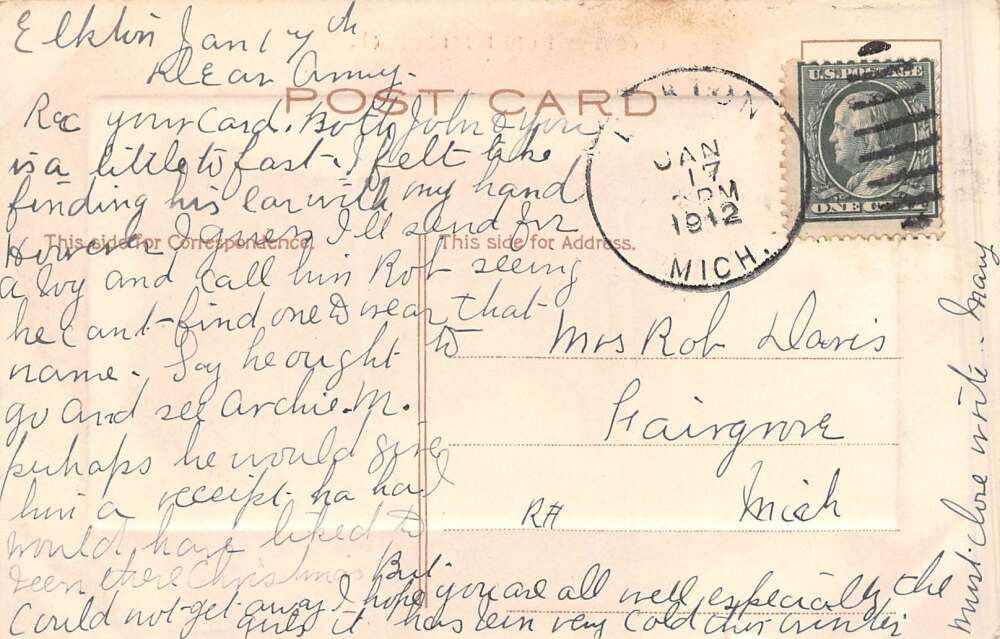 Elkton Jan 17th
Dear Amy.
POST CARD
Rec your Card. Both John & you
is a little to fast. I felt like
finding his ear with my hand
However, I guess I'll send for
This side for Correspondence.
a boy and call him Rob seeing
he cant find one to wear that
name. Say he ought to
go and see Archie. M.
perhaps he would give
him a receipt. ha ha I
would have liked to
been there Christmas But
Could not get away I hope you are all well, especially the
girls it has been very cold this winter
Must close write
JAN
17
PM
1912
MICH.
U.S. POSTAGE
ONE CENT
This side for Address.
Mrs Rob Davis
Fairgrove
Mich
RH